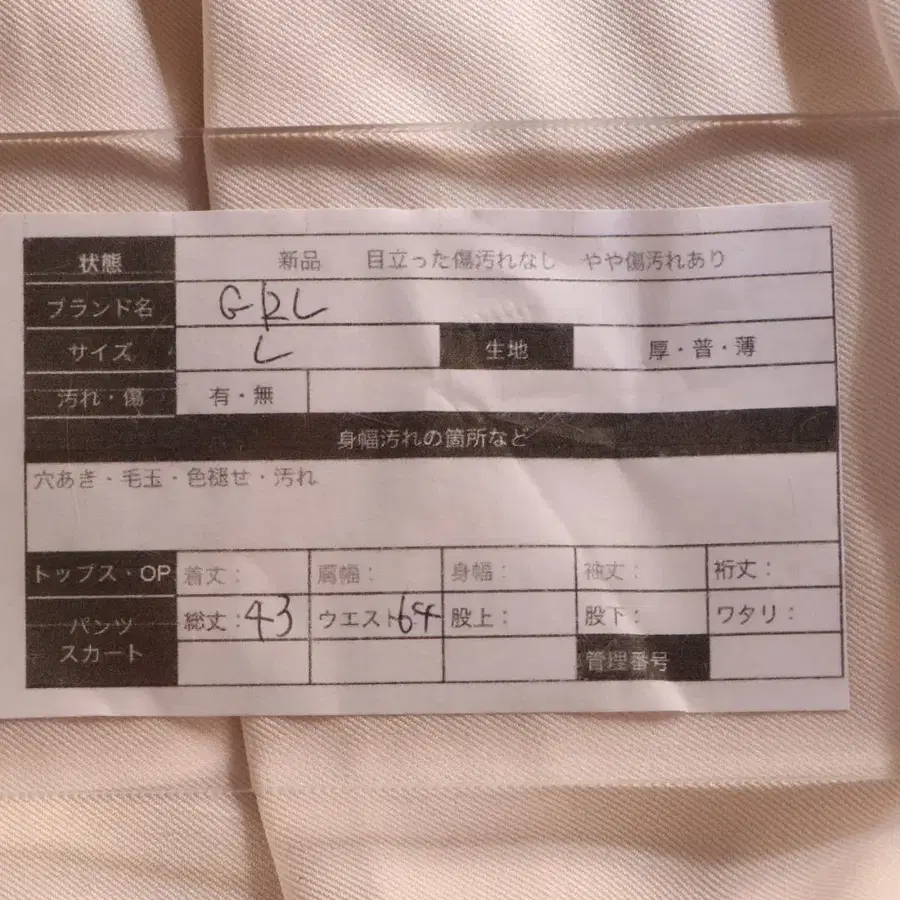 状態 新品 目立った傷汚れなし やや傷汚れあり
ブランド名 GRL
サイズ L 生地 厚・普・薄
汚れ・傷 有・無
身幅汚れの箇所など
穴あき・毛玉・色褪せ・汚れ
トップス・OP 着丈: 肩幅: 身幅: 袖丈: 裄丈:
パンツ 総丈:43 ウエスト64 股上: 股下: ワタリ:
スカート 管理番号